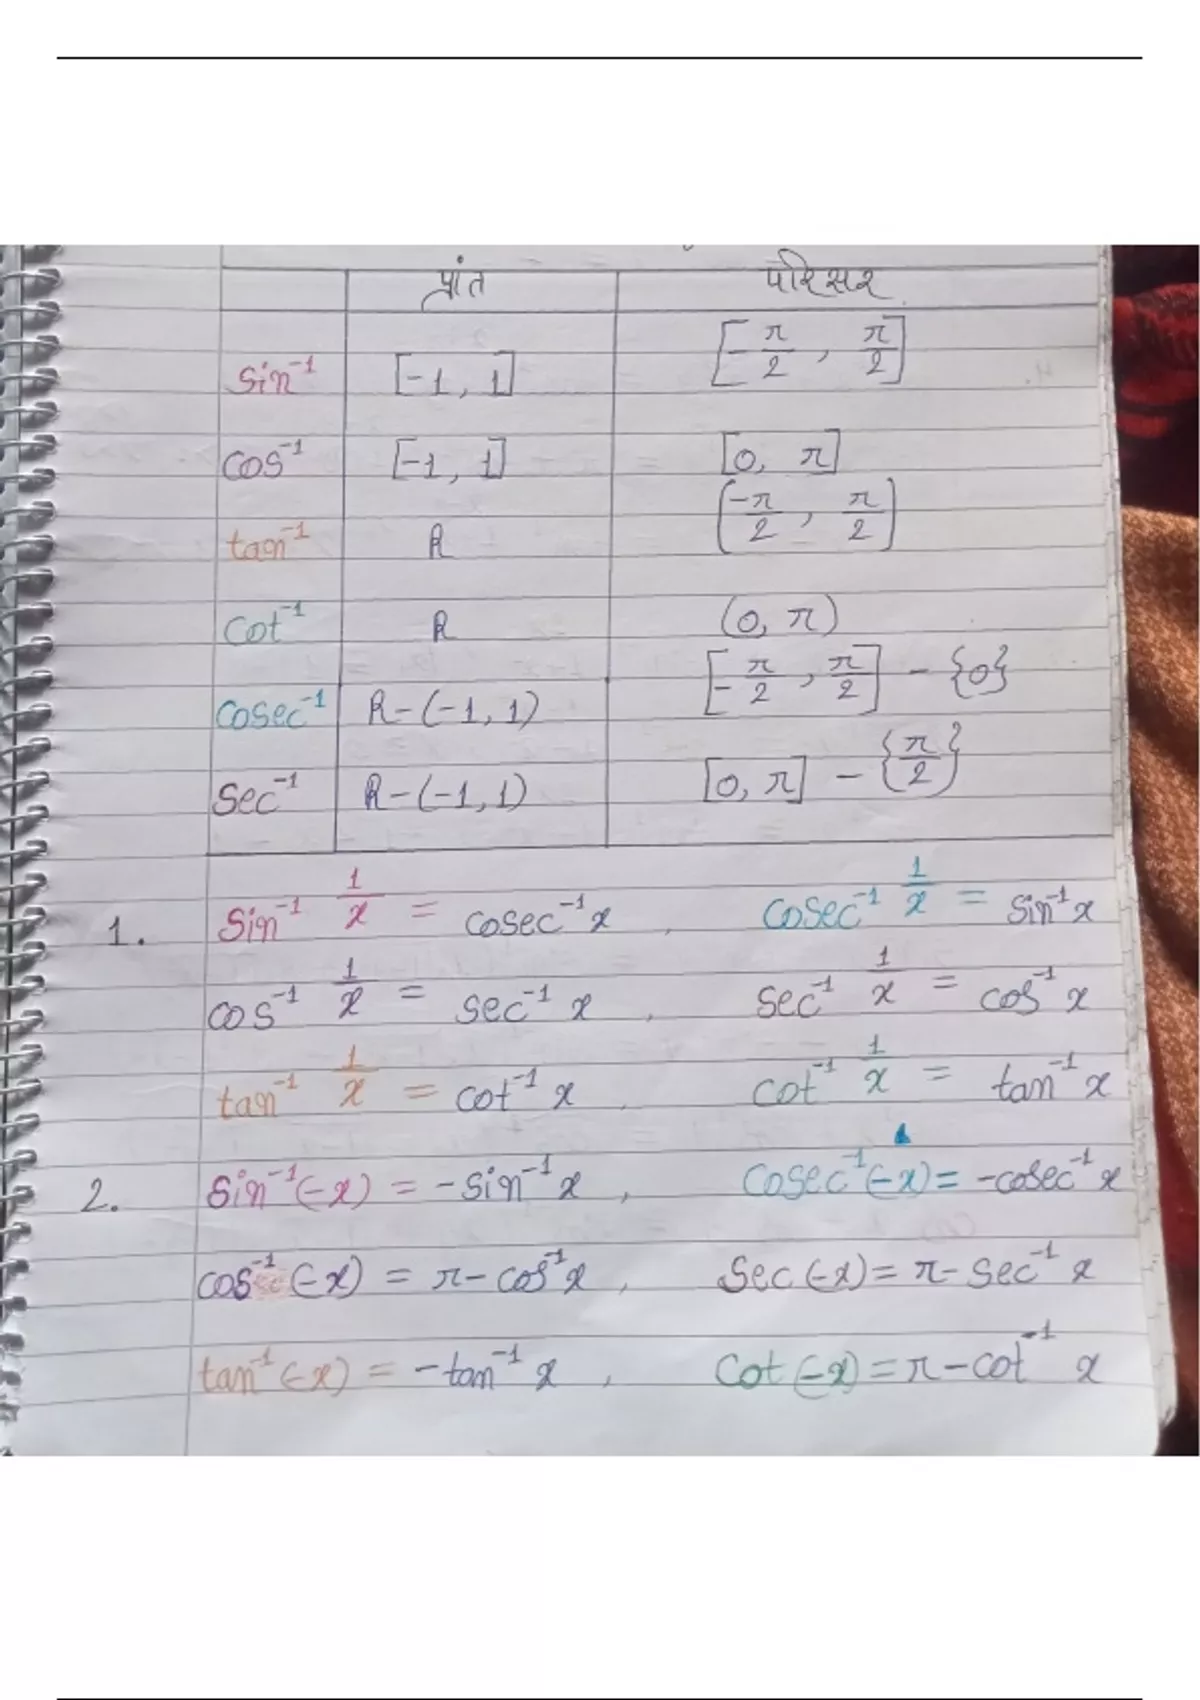 प्रांत परिसर
sin⁻¹ [-1, 1] [-π/2, π/2]
cos⁻¹ [-1, 1] [0, π]
tan⁻¹ R (-π/2, π/2)
cot⁻¹ R (0, π)
cosec⁻¹ R-(-1, 1) [-π/2, π/2] - {0}
sec⁻¹ R-(-1, 1) [0, π] - {π/2}
1. sin⁻¹ 1/x = cosec⁻¹ x, cosec⁻¹ 1/x = sin⁻¹ x
cos⁻¹ 1/x = sec⁻¹ x, sec⁻¹ 1/x = cos⁻¹ x
tan⁻¹ 1/x = cot⁻¹ x, cot⁻¹ 1/x = tan⁻¹ x
2. sin⁻¹(-x) = -sin⁻¹ x, cosec⁻¹(-x) = -cosec⁻¹ x
cos⁻¹(-x) = π-cos⁻¹ x, sec(-x) = π-sec⁻¹ x
tan⁻¹(-x) = -tan⁻¹ x, cot(-x) = π-cot⁻¹ x